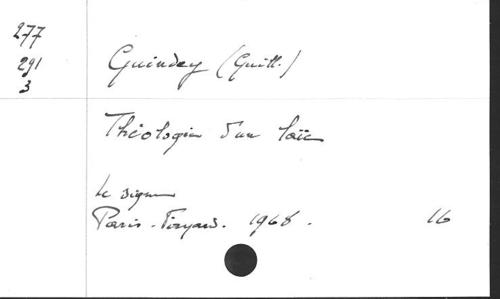 277
291
3
Guindey (Guill.)
Théologie d'un laïc
Le signe
Paris - Fayard. 1968.
16